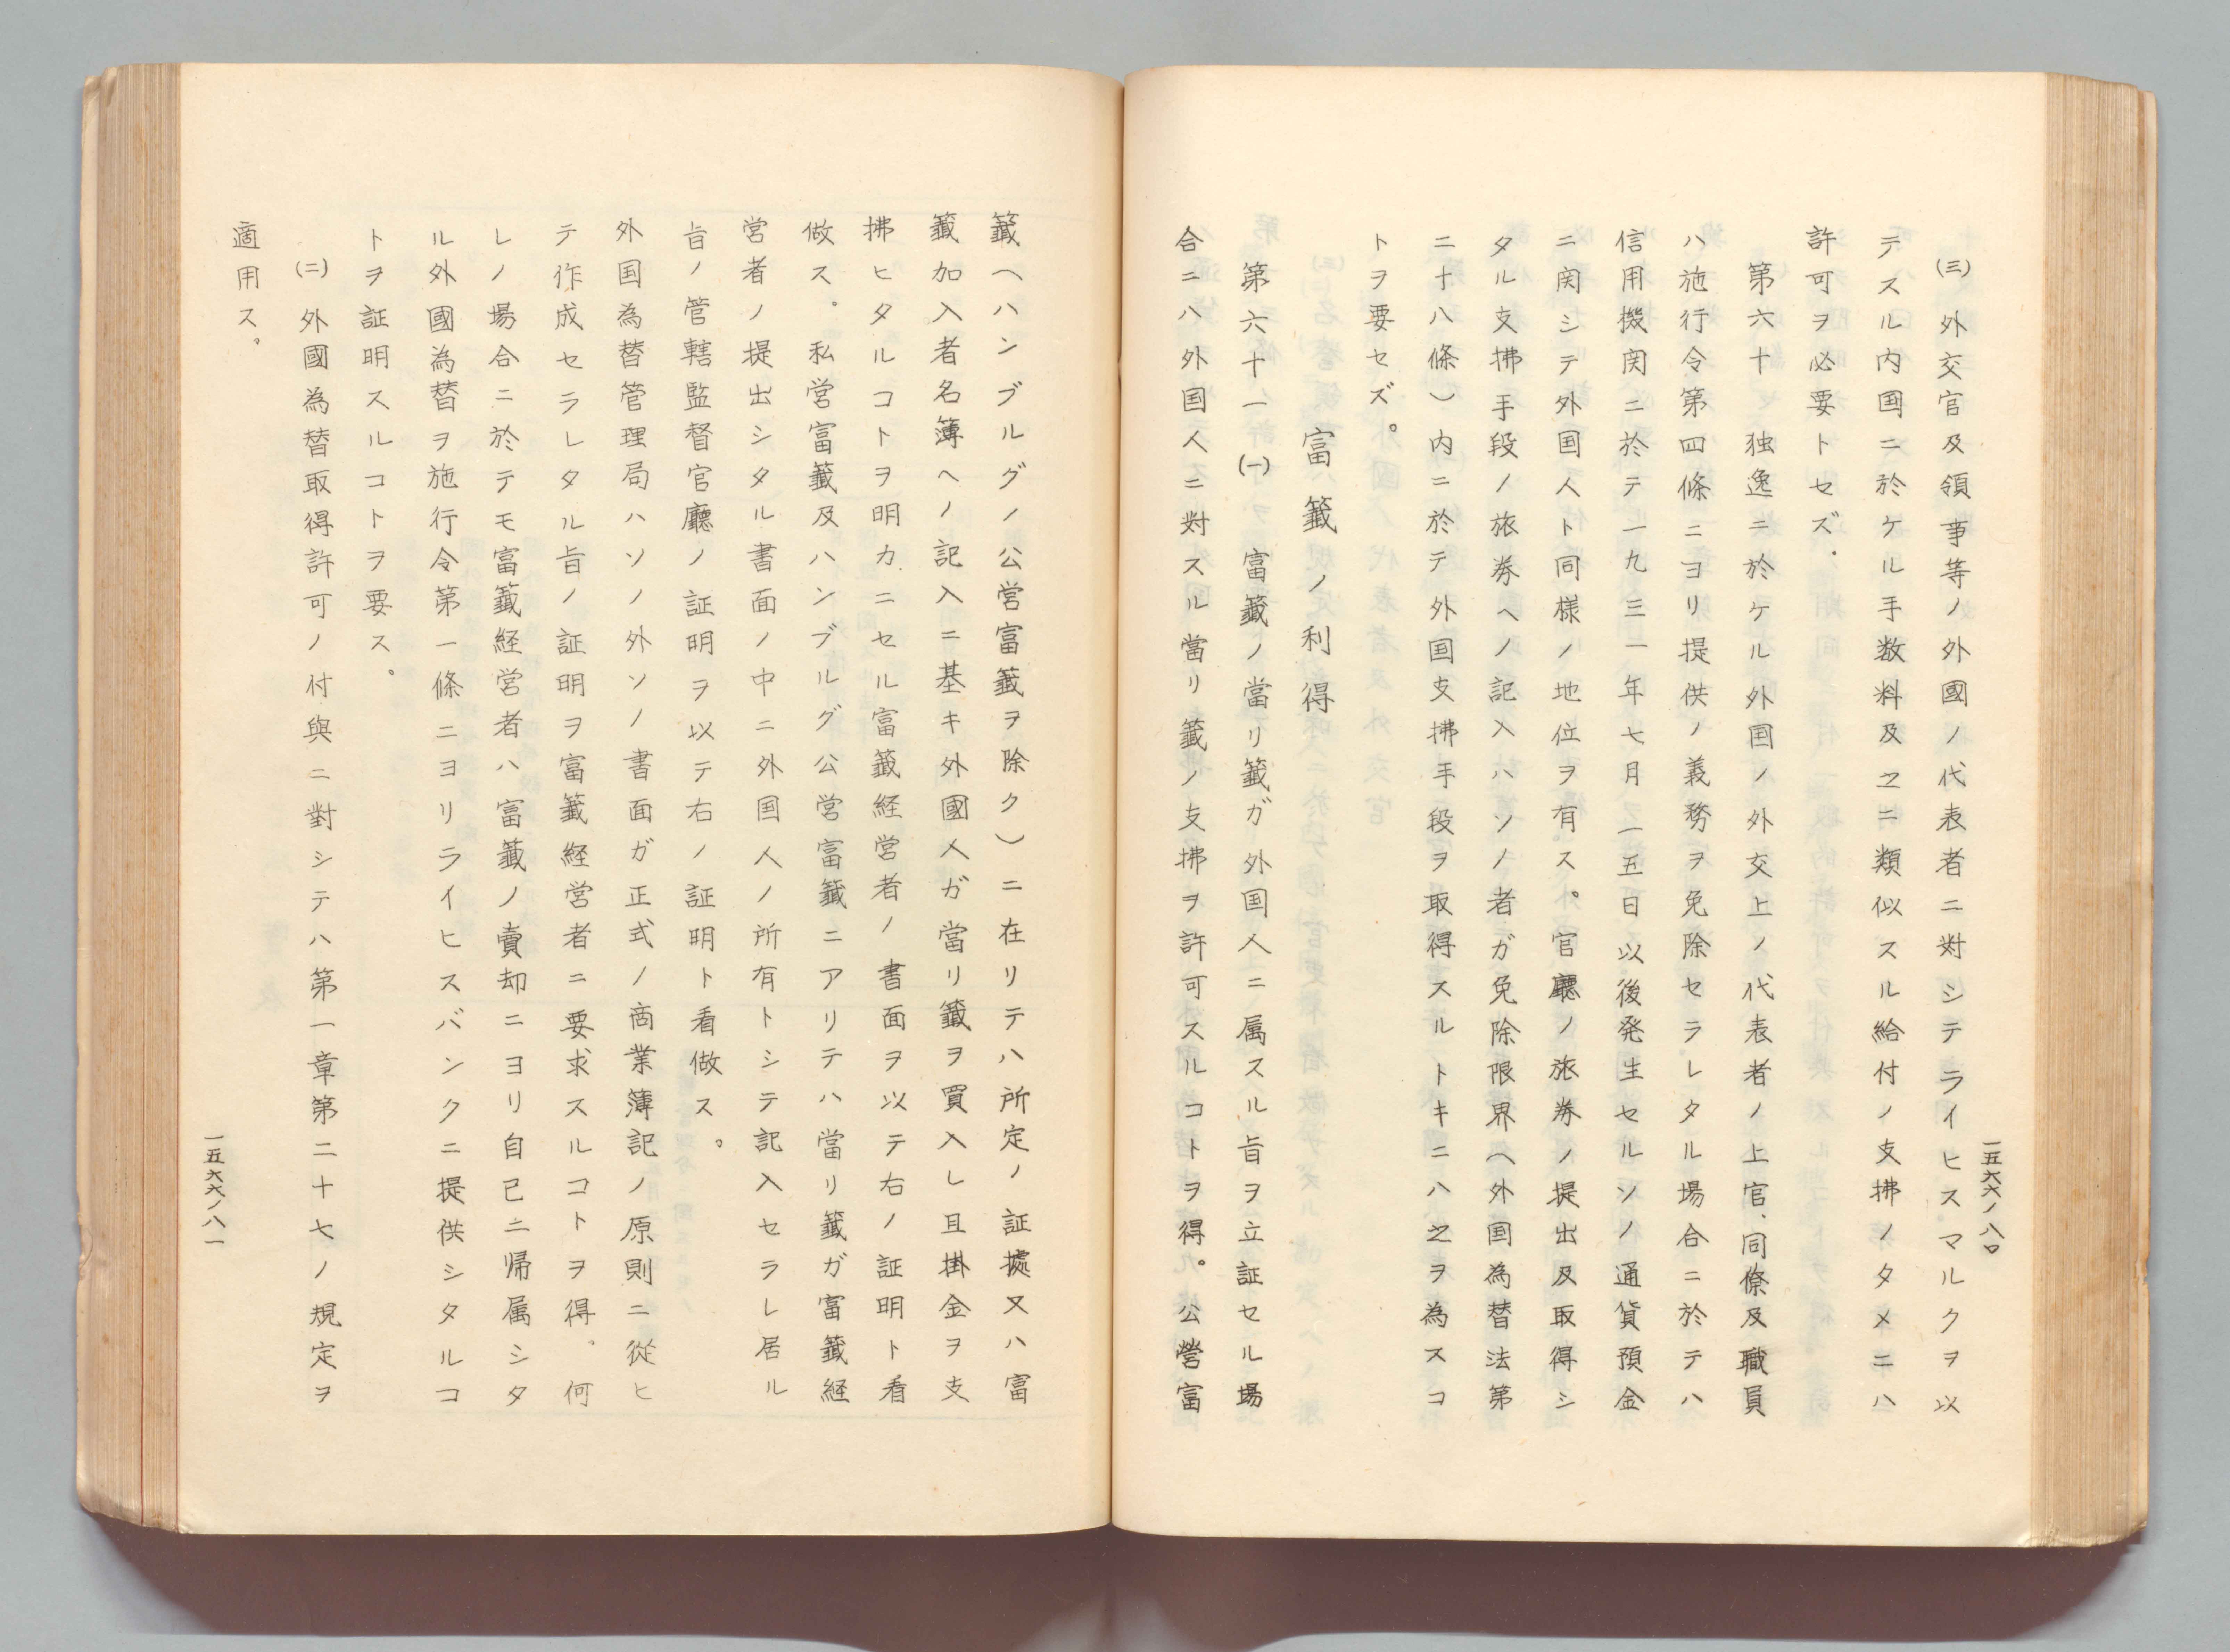 (三)外交官及領事等ノ外國ノ代表者ニ対シテライヒス、マルクヲ以
テスル内国ニ於ケル手数料及之ニ類似スル給付ノ支拂ノタメニハ
許可ヲ必要トセズ.
第六十 独逸ニ於ケル外国ノ外交上ノ代表者ノ上官、同僚及職員
ハ施行令第四條ニヨリ提供ノ義務ヲ免除セラレタル場合ニ於テハ
信用機関ニ於テ一九三一年七月一五日以後発生セルソノ通貨預金
ニ関シテ外国人ト同様ノ地位ヲ有ス。官廳ノ旅券ノ提出及取得シ
タル支拂手段ノ旅券ヘノ記入ハソノ者ガ免除限界(外国為替法第
二十八條)内ニ於テ外国支拂手段ヲ取得スルトキニハ之ヲ為スコ
トヲ要セズ。
富籤ノ利得
第六十一 (一)富籤ノ當リ籤ガ外国人ニ属スル旨ヲ立証セル場
合ニハ外国人ニ対スル當リ籤ノ支拂ヲ許可スルコトヲ得。公營富
一五六六ノ八〇
籤(ハンブルグノ公営富籤ヲ除ク)ニ在リテハ所定ノ証據又ハ富
籤加入者名簿ヘノ記入ニ基キ外國人ガ當リ籤ヲ買入レ且掛金ヲ支
拂ヒタルコトヲ明カニセル富籤経営者ノ書面ヲ以テ右ノ証明ト看
做ス。私営富籤及ハンブルグ公営富籤ニアリテハ當リ籤ガ富籤経
営者ノ提出シタル書面ノ中ニ外国人ノ所有トシテ記入セラレ居ル
旨ノ管轄監督官廳ノ証明ヲ以テ右ノ証明ト看做ス。
外国為替管理局ハソノ外ソノ書面ガ正式ノ商業薄記ノ原則ニ從ヒ
テ作成セラレタル旨ノ証明ヲ富籤経営者ニ要求スルコトヲ得.何
レノ場合ニ於テモ富籤経営者ハ富籤ノ賣却ニヨリ自己ニ帰属シタ
ル外國為替ヲ施行令第一條ニヨリライヒスバンクニ提供シタルコ
トヲ証明スルコトヲ要ス。
(二)外國為替取得許可ノ付與ニ對シテハ第一章第二十七ノ規定ヲ
適用ス。
一五六六ノ八一